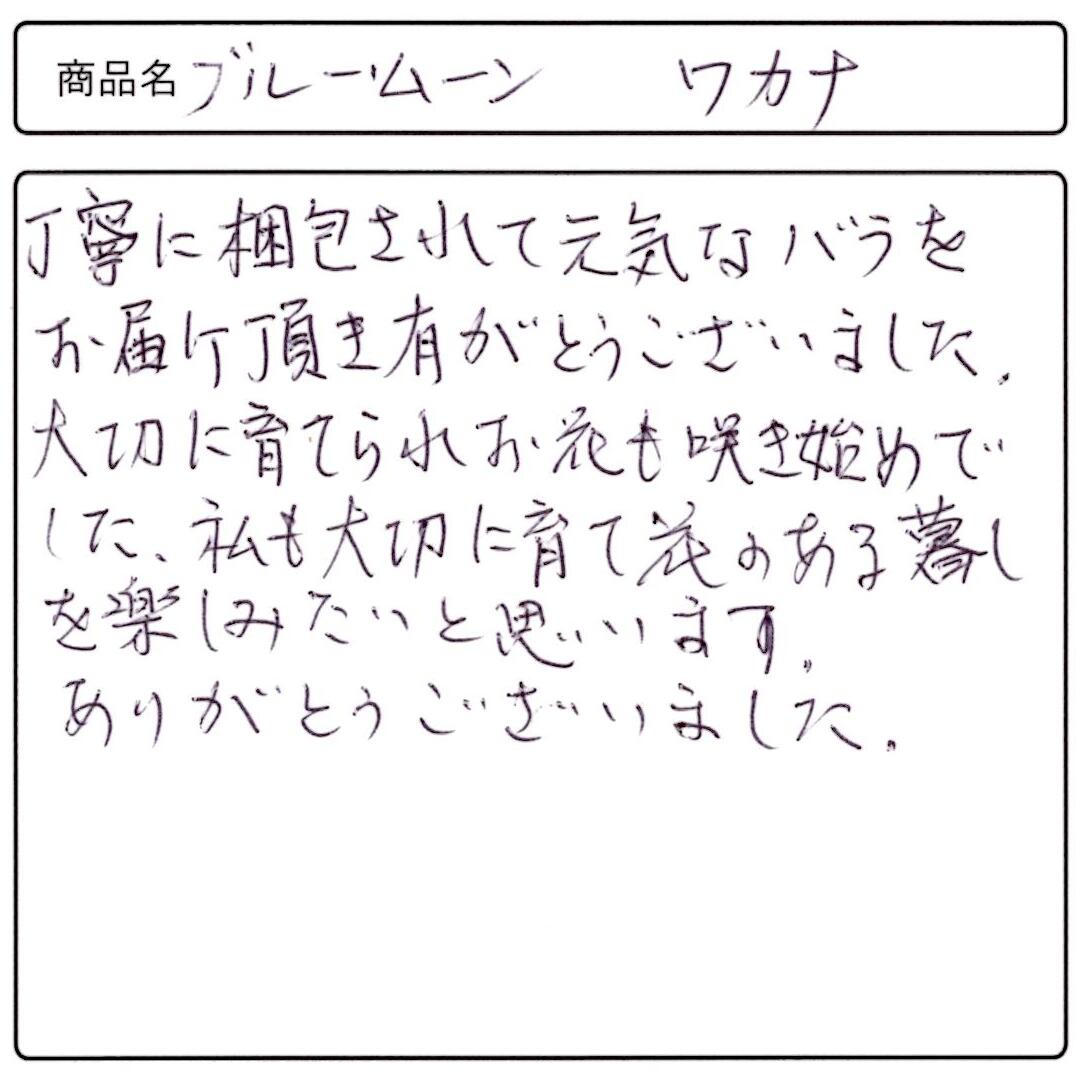 商品名 ブルームーン ワカナ
丁寧に梱包されて元気なバラを
お届け頂き有がとうございました.
大切に育てられお花も咲き始めで
した、私も大切に育て花のある暮し
を楽しみたいと思いいます.
ありがとうございました.